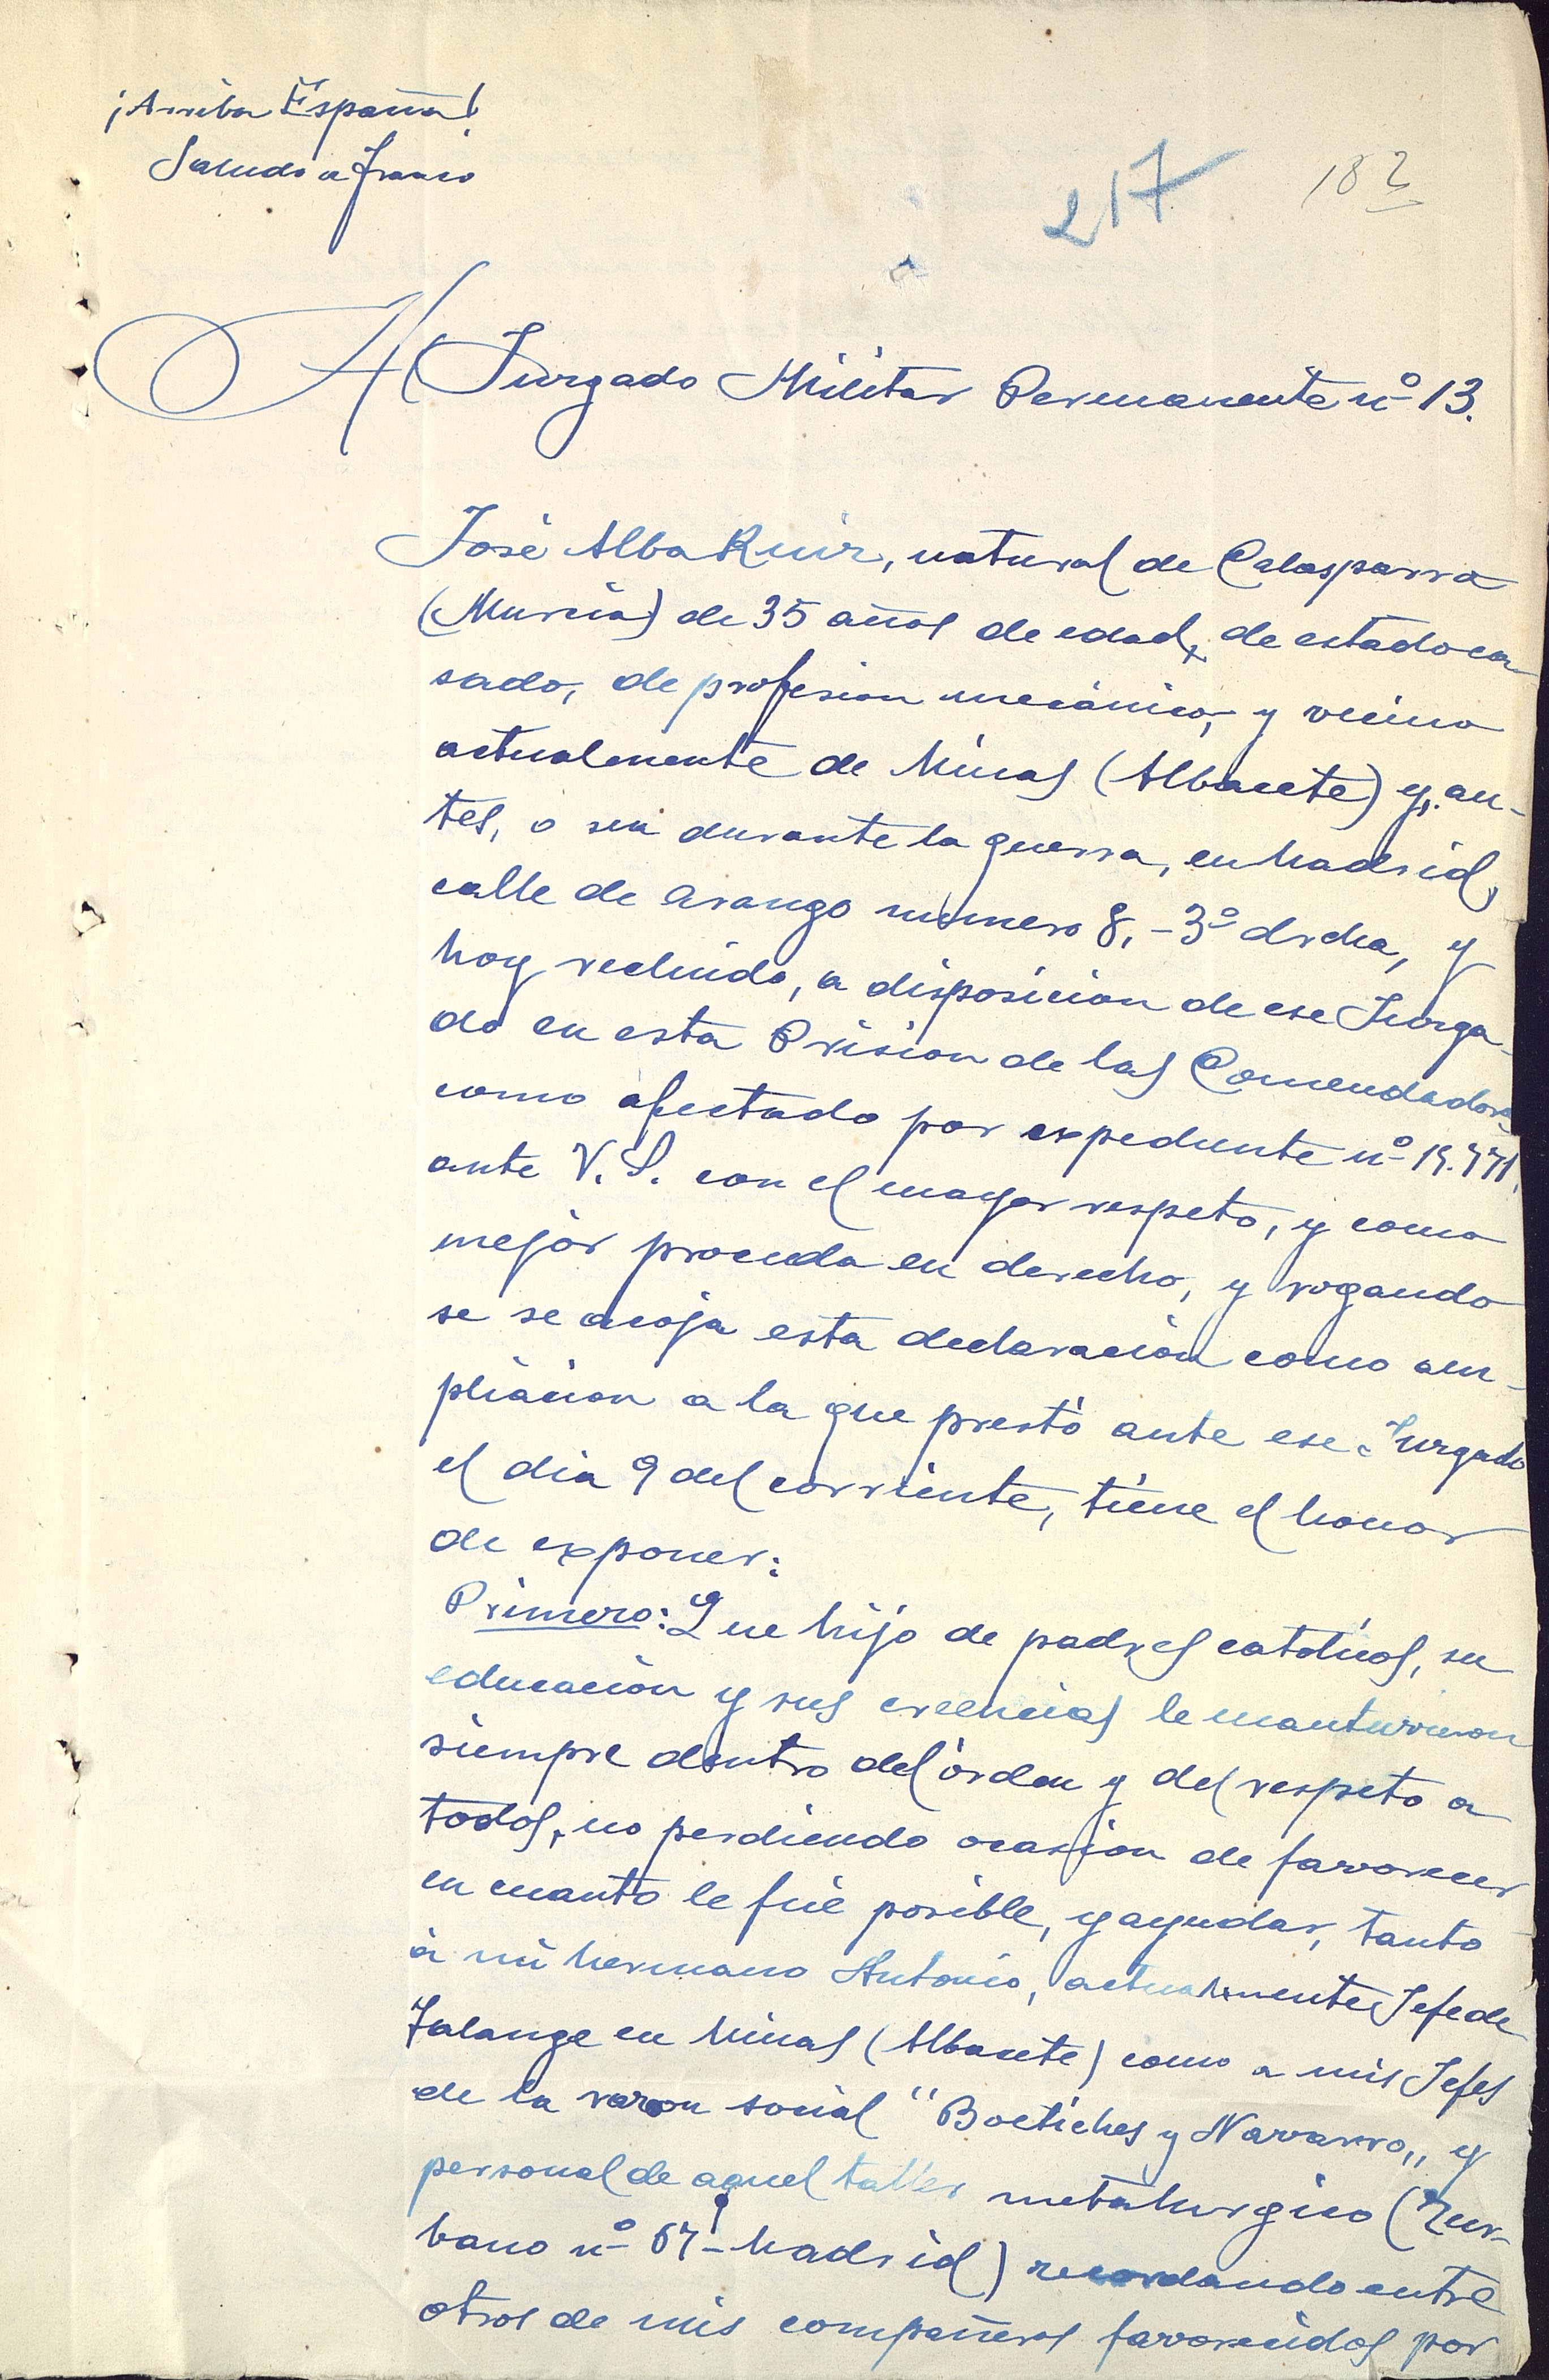 ¡Arriba España!
Saludo a Franco
217
183
Al Jurgado Militar Permanente nº 13.
José Alba Ruiz, natural de Calasparra
(Murcia) de 35 años de edad, de estado ca-
sado, de profesion mecánico, y vecino
actualmente de Minas (Albacete) y, an-
tes, o sea durante la guerra, en Madrid,
calle de Arango numero 8, - 3º drcha, y
hoy recluido, a disposicion de ese Jurga-
do en esta Prision de las Comendadoras
como afectado por expediente nº 19.771,
ante V. S. con el mayor respeto, y como
mejor proceda en derecho, y rogando
se se acoja esta declaración como am-
pliacion a la que prestó ante ese Jurgado
el dia 9 del corriente, tiene el honor
de exponer:
Primero: Que hijo de padres catolicos, su
educación y sus creencias le mantuvieron
siempre dentro del órden y del respeto a
todos, no perdiendo ocasion de favorecer
en cuanto le fué posible, y ayudar, tanto
á mi hermano Antonio, actualmente Jefe de
Falange en Minas (Albacete) como a mis Jefes
de la razon social "Boetiches y Navarro,, y
personal de aquel taller metalurgico (Zur-
bano nº 67 - Madrid) recordando entre
otros de mis compañeros favorecidos por